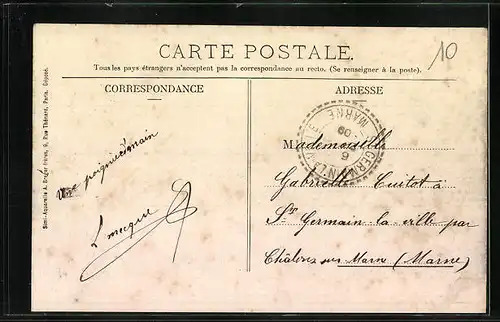 CARTE POSTALE.
Tous les pays étrangers n'acceptent pas la correspondance au recto. (Se renseigner à la poste).
10
CORRESPONDANCE
ADRESSE
Semi-Aquarelle A. Breger frères, 9, Rue Thénard, Paris. Déposé.
Une poignée de main
MARNE
09
6
Mademoiselle
Gabrielle Cuitot à
St Germain la ville par
Châlons sur Marne (Marne)